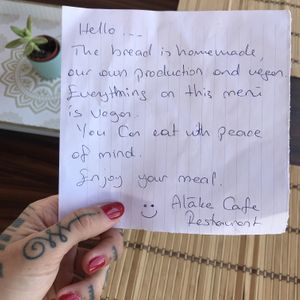 Hello ...
The bread is homemade,
our own production and vegan
Everything on this menü
is vegan.
You Can eat with peace
of mind.
Enjoy your meal.
Atake Cafe
Restaurant